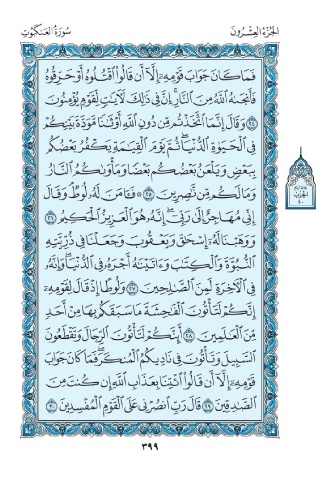 الجزء العشرون
سورة العنكبوت
فَمَا كَانَ جَوَابَ قَوْمِهِۦٓ إِلَّآ أَن قَالُوا۟ ٱقْتُلُوهُ أَوْ حَرِّقُوهُ
فَأَنجَىٰهُ ٱللَّهُ مِنَ ٱلنَّارِ إِنَّ فِى ذَٰلِكَ لَـَٔايَـٰتٍ لِّقَوْمٍ يُؤْمِنُونَ
٢٤ وَقَالَ إِنَّمَا ٱتَّخَذْتُم مِّن دُونِ ٱللَّهِ أَوْثَـٰنًا مَّوَدَّةَ بَيْنِكُمْ
فِى ٱلْحَيَوٰةِ ٱلدُّنْيَا ثُمَّ يَوْمَ ٱلْقِيَـٰمَةِ يَكْفُرُ بَعْضُكُم
بِبَعْضٍ وَيَلْعَنُ بَعْضُكُم بَعْضًا وَمَأْوَىٰكُمُ ٱلنَّارُ
وَمَا لَكُم مِّن نَّـٰصِرِينَ ٢٥ ۞ فَـَٔامَنَ لَهُۥ لُوطٌ وَقَالَ
إِنِّى مُهَاجِرٌ إِلَىٰ رَبِّىٓ إِنَّهُۥ هُوَ ٱلْعَزِيزُ ٱلْحَكِيمُ ٢٦
وَوَهَبْنَا لَهُۥٓ إِسْحَـٰقَ وَيَعْقُوبَ وَجَعَلْنَا فِى ذُرِّيَّتِهِ
ٱلنُّبُوَّةَ وَٱلْكِتَـٰبَ وَءَاتَيْنَـٰهُ أَجْرَهُۥ فِى ٱلدُّنْيَا وَإِنَّهُۥ
فِى ٱلْـَٔاخِرَةِ لَمِنَ ٱلصَّـٰلِحِينَ ٢٧ وَلُوطًا إِذْ قَالَ لِقَوْمِهِۦٓ
إِنَّكُمْ لَتَأْتُونَ ٱلْفَـٰحِشَةَ مَا سَبَقَكُم بِهَا مِنْ أَحَدٍ
مِّنَ ٱلْعَـٰلَمِينَ ٢٨ أَئِنَّكُمْ لَتَأْتُونَ ٱلرِّجَالَ وَتَقْطَعُونَ
ٱلسَّبِيلَ وَتَأْتُونَ فِى نَادِيكُمُ ٱلْمُنكَرَ فَمَا كَانَ جَوَابَ
قَوْمِهِۦٓ إِلَّآ أَن قَالُوا۟ ٱئْتِنَا بِعَذَابِ ٱللَّهِ إِن كُنتَ مِنَ
ٱلصَّـٰدِقِينَ ٢٩ قَالَ رَبِّ ٱنصُرْنِى عَلَى ٱلْقَوْمِ ٱلْمُفْسِدِينَ ٣٠
الحزب
٤٠
٣٩٩